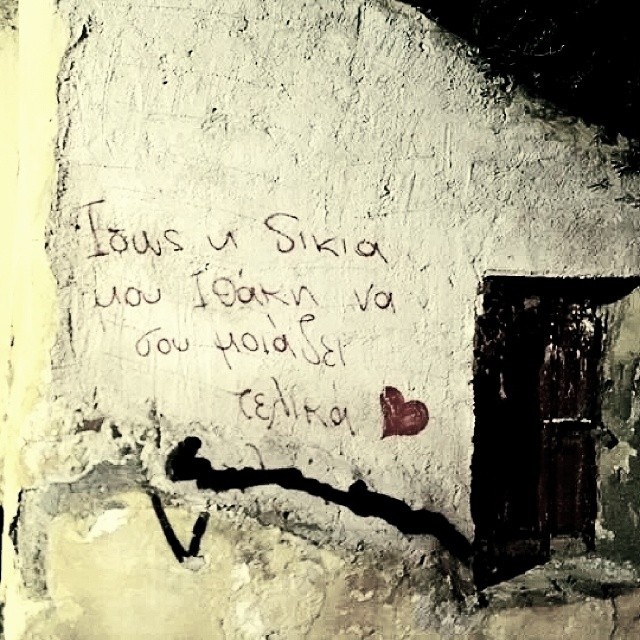 Ισως η δικια
μου Ιθάκη να
σου μοιάζει
τελικα